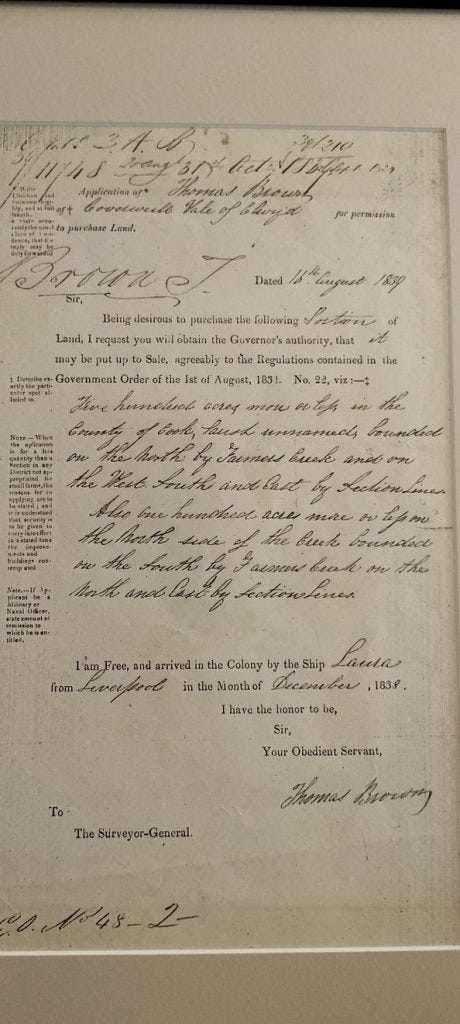 39/210
11748 20 Augt 31st Oct
Application of* Thomas Brown
of† Vale of Clwyd for permission
to purchase Land.
Brown T.
Dated 16th August 1839
Sir,
Being desirous to purchase the following Portion of
Land, I request you will obtain the Governor's authority, that it
may be put up to Sale, agreeably to the Regulations contained in the
Government Order of the 1st of August, 1831. No. 22, viz:—‡
Five hundred acres more or less in the
County of Cook, Parish unnamed, bounded
on the North by Farmers Creek and on
the West South and East by Section Lines.
Also one hundred acres more or less on
the North side of the Creek bounded
on the South by Farmers Creek on the
North and East by Section Lines.
* Write
Christian and
surname legi-
bly, and at full
length.
‡ Describe ex-
actly the parti-
cular spot al-
luded to.
NOTE.—When
the aplication
is for a less
quantity than a
Section in any
District not ap-
propriated for
small farms, the
reasons for so
applying are to
be stated; and
it is understood
that security is
to be given to
carry into effect
in a stated time
the improve-
ments and
buildings con-
templated
Note.—If Ap-
plicant be a
Military or
Naval Officer,
state amount of
remission to
which he is en-
titled.
I am Free, and arrived in the Colony by the Ship Laura
from Liverpool in the Month of December, 1838.
I have the honor to be,
Sir,
Your Obedient Servant,
Thomas Brown
To
The Surveyor-General.
No 48-2-